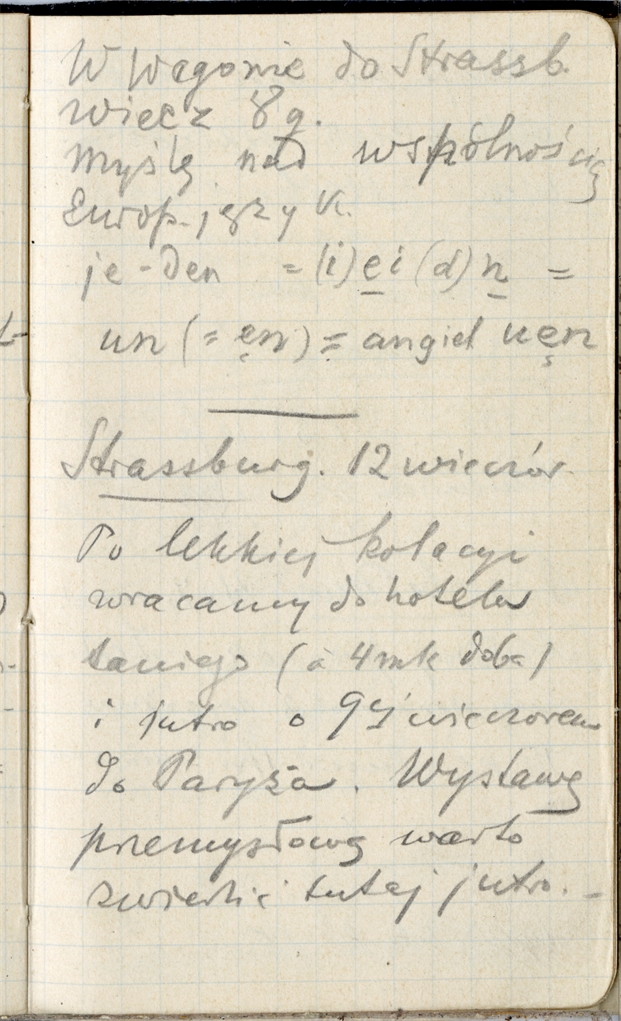 W Wagonie do Strassb.
wiecz 8 g.
Myślę nad wspólnością
Europ. język.
je-den = (i)ei(d)n =
un (= ęn) = angiel uęn
Strassburg. 12 wieczór.
Po lekkiej kolacyi
wracamy do hotelu
taniego (à 4 mk doba)
i jutro o 9ej wieczorem
do Paryża. Wystawę
przemysłową warto
zwiedzić tutaj jutro. –